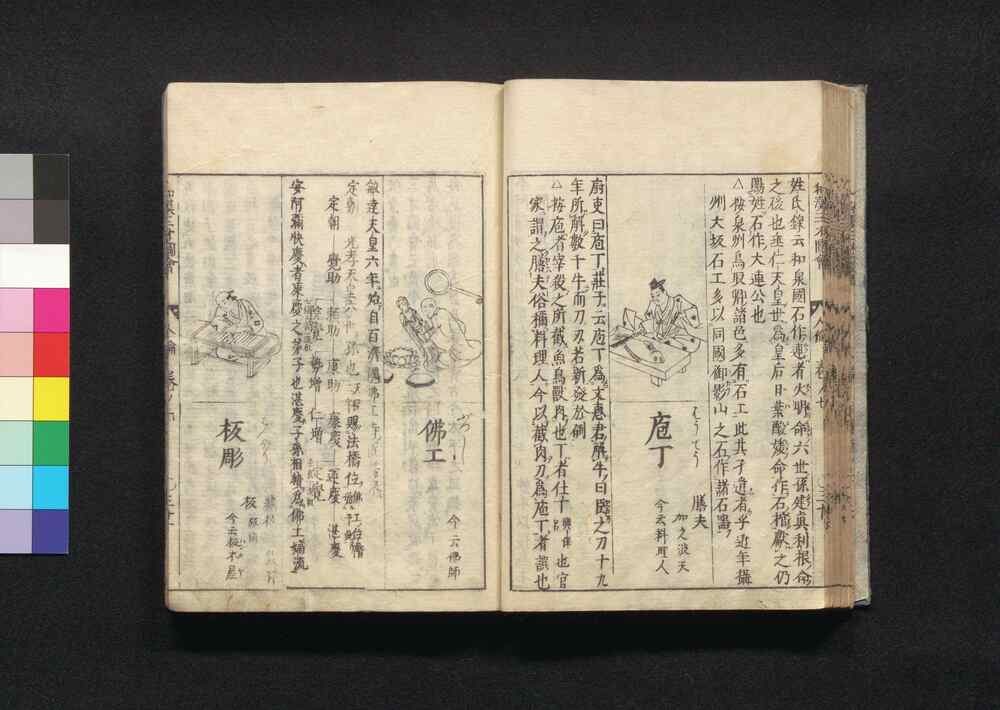 姓氏錄云和泉國石作連者火明命六世孫建眞利根命
之後也垂仁天皇世爲皇后日葉酸媛命作石棺獻之仍
賜姓石作大連公也
△按泉州鳥取鄕諸邑多有石工此其子孫者乎近年攝
州大坂石工多以同國御影山之石作諸石噐
庖丁
はうてう
膳夫
加之波天
今云料理人
府吏曰庖丁莊子云庖丁爲文惠君解牛曰臣之刀十九
年所解數千牛而刀刃若新發於硎
△按庖者宰殺之所截魚鳥獸肉也丁者仕丁也官
家謂之膳夫俗稱料理人今以截肉刀爲庖丁者誤也
佛工
ぶつし
今云佛師
敏達天皇六年始自百濟
定朝
定朝 覺助 賴助 康助 康慶 運慶 湛慶
安阿彌快慶者康慶之弟子也湛慶子孫相續爲佛工嫡流
板彫
板
今云板木屋